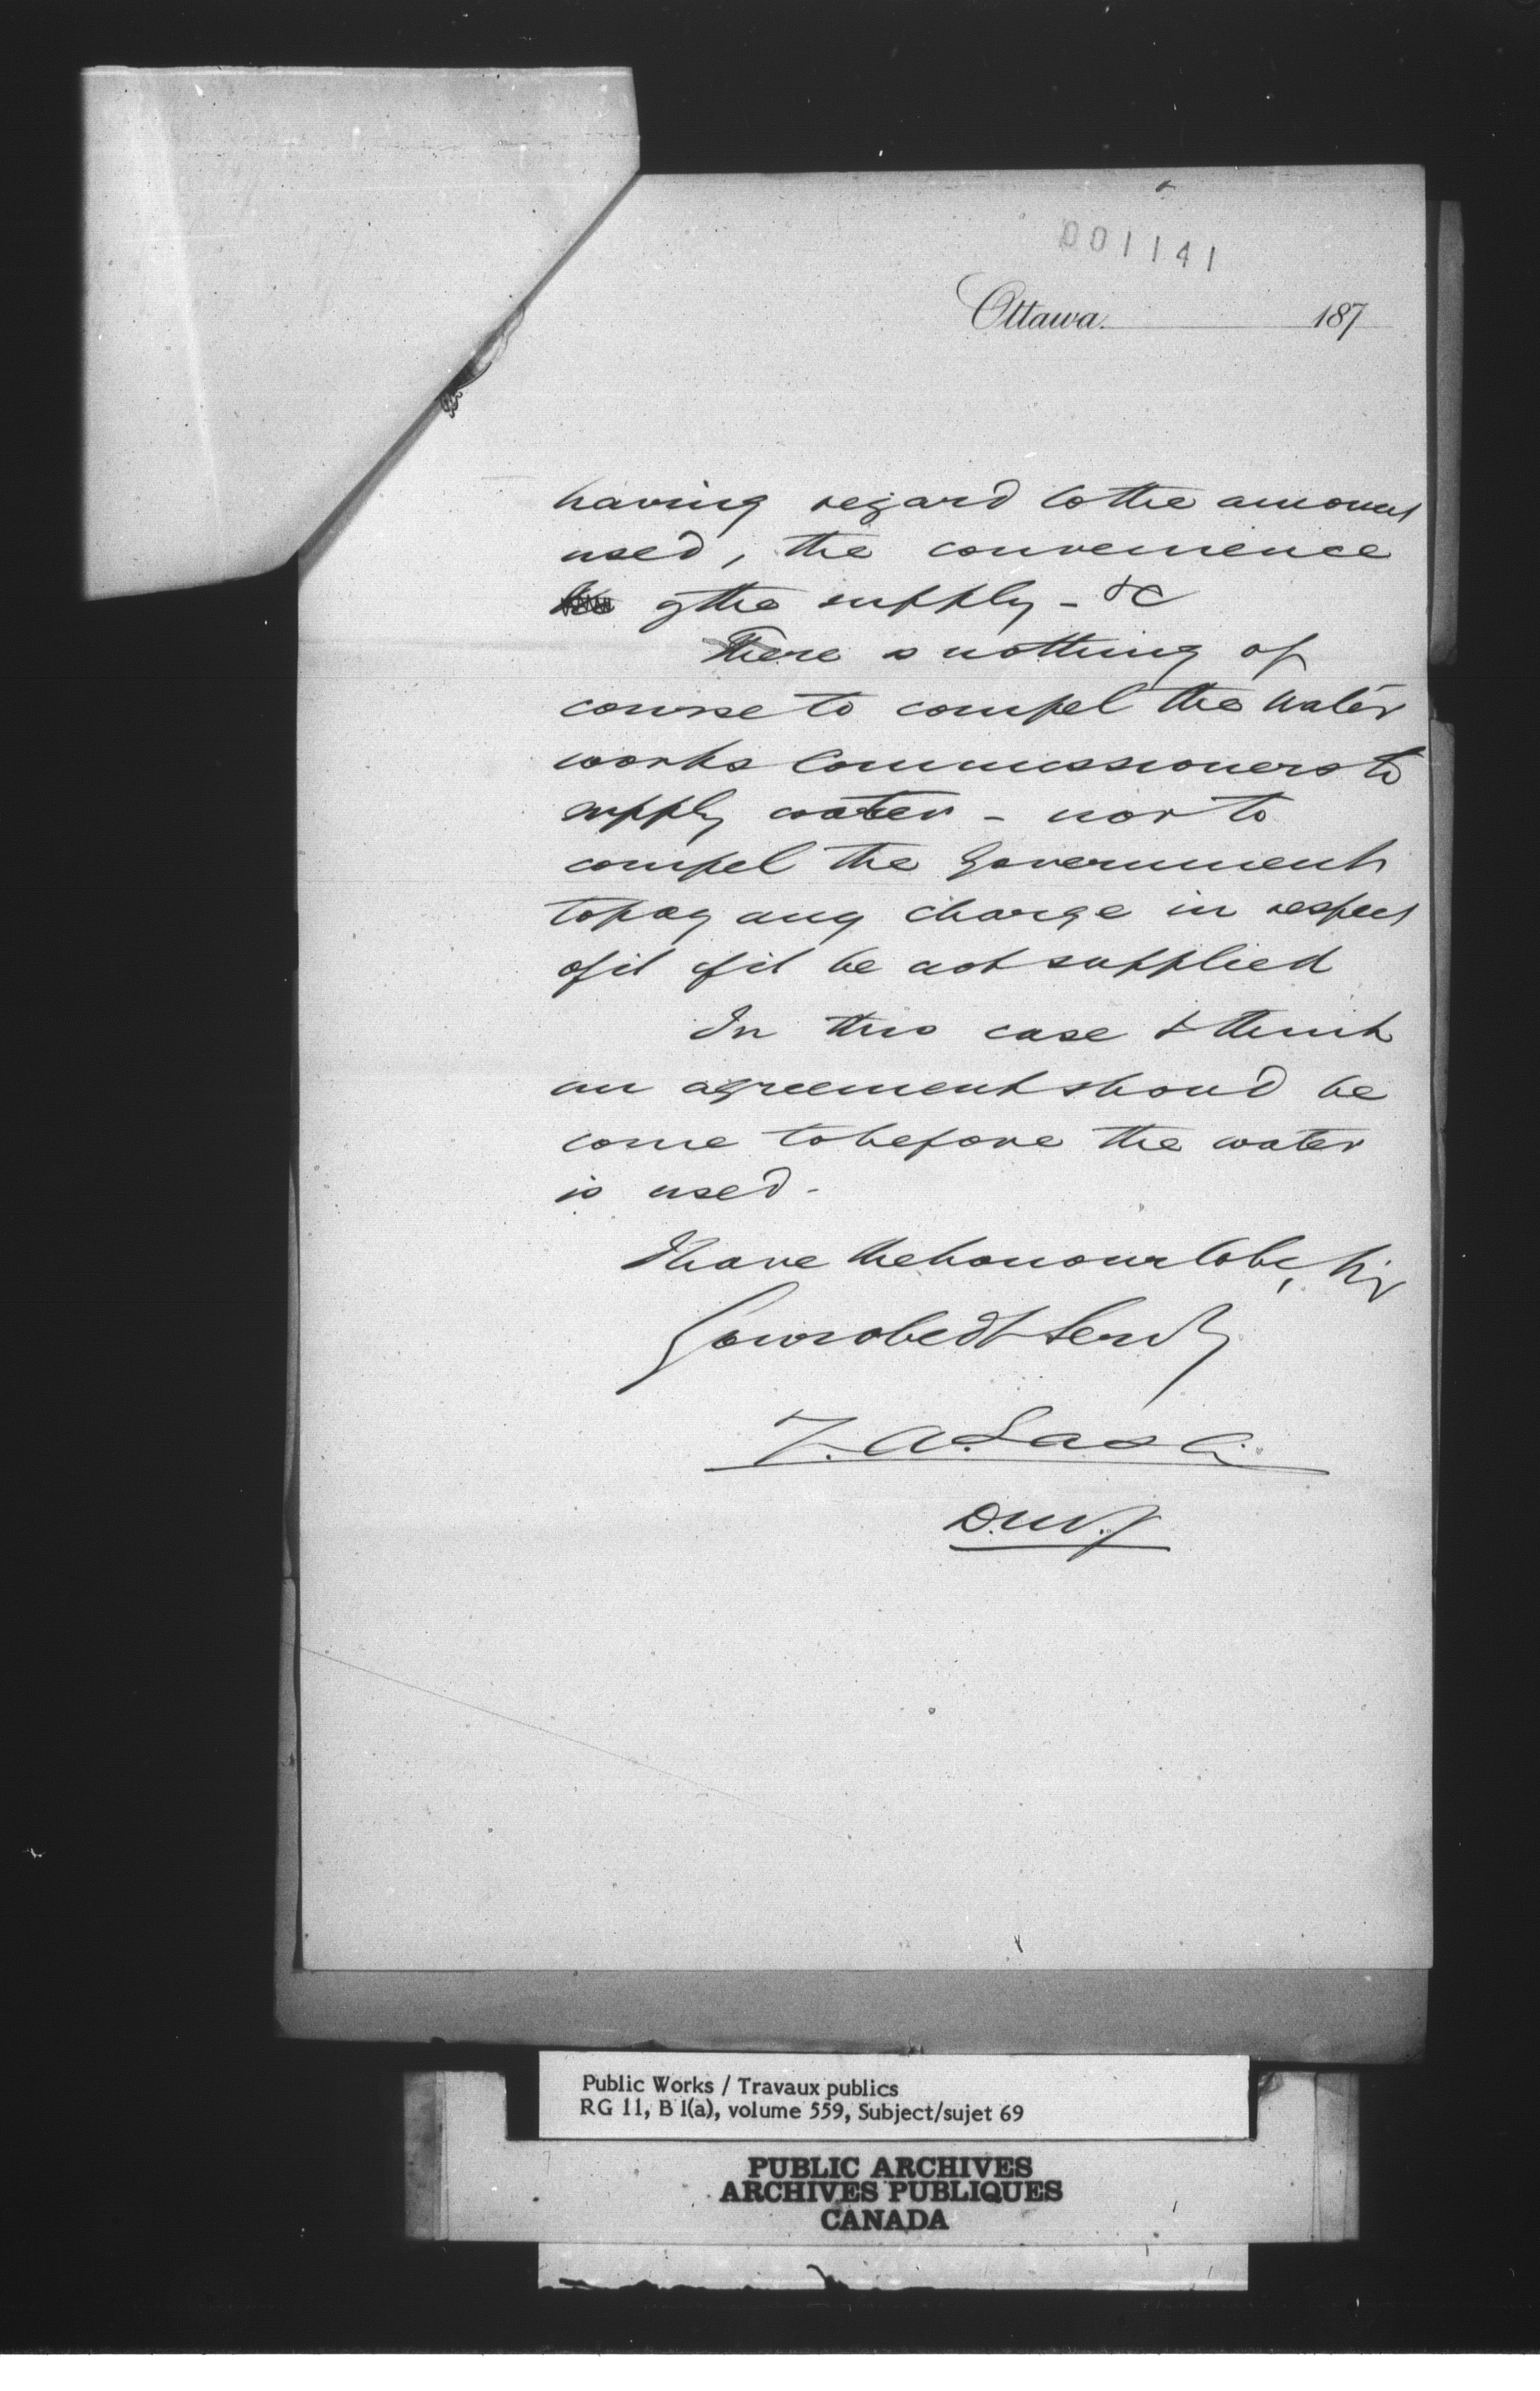 001141
Ottawa. 187
having regard to the amount
used, the convenience
of the supply - &c
There is nothing of
course to compel the Water
works Commissioners to
supply water - nor to
compel the Government
to pay any charge in respect
of it if it be not supplied
In this case I think
an agreement should be
come to before the water
is used -
I have the honour to be, Sir
Your obedt Servt
Z. A. Lash
D.M.J
Public Works / Travaux publics
RG 11, B 1(a), volume 559, Subject/sujet 69
PUBLIC ARCHIVES
ARCHIVES PUBLIQUES
CANADA